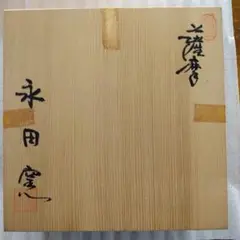 薩摩
永田窯